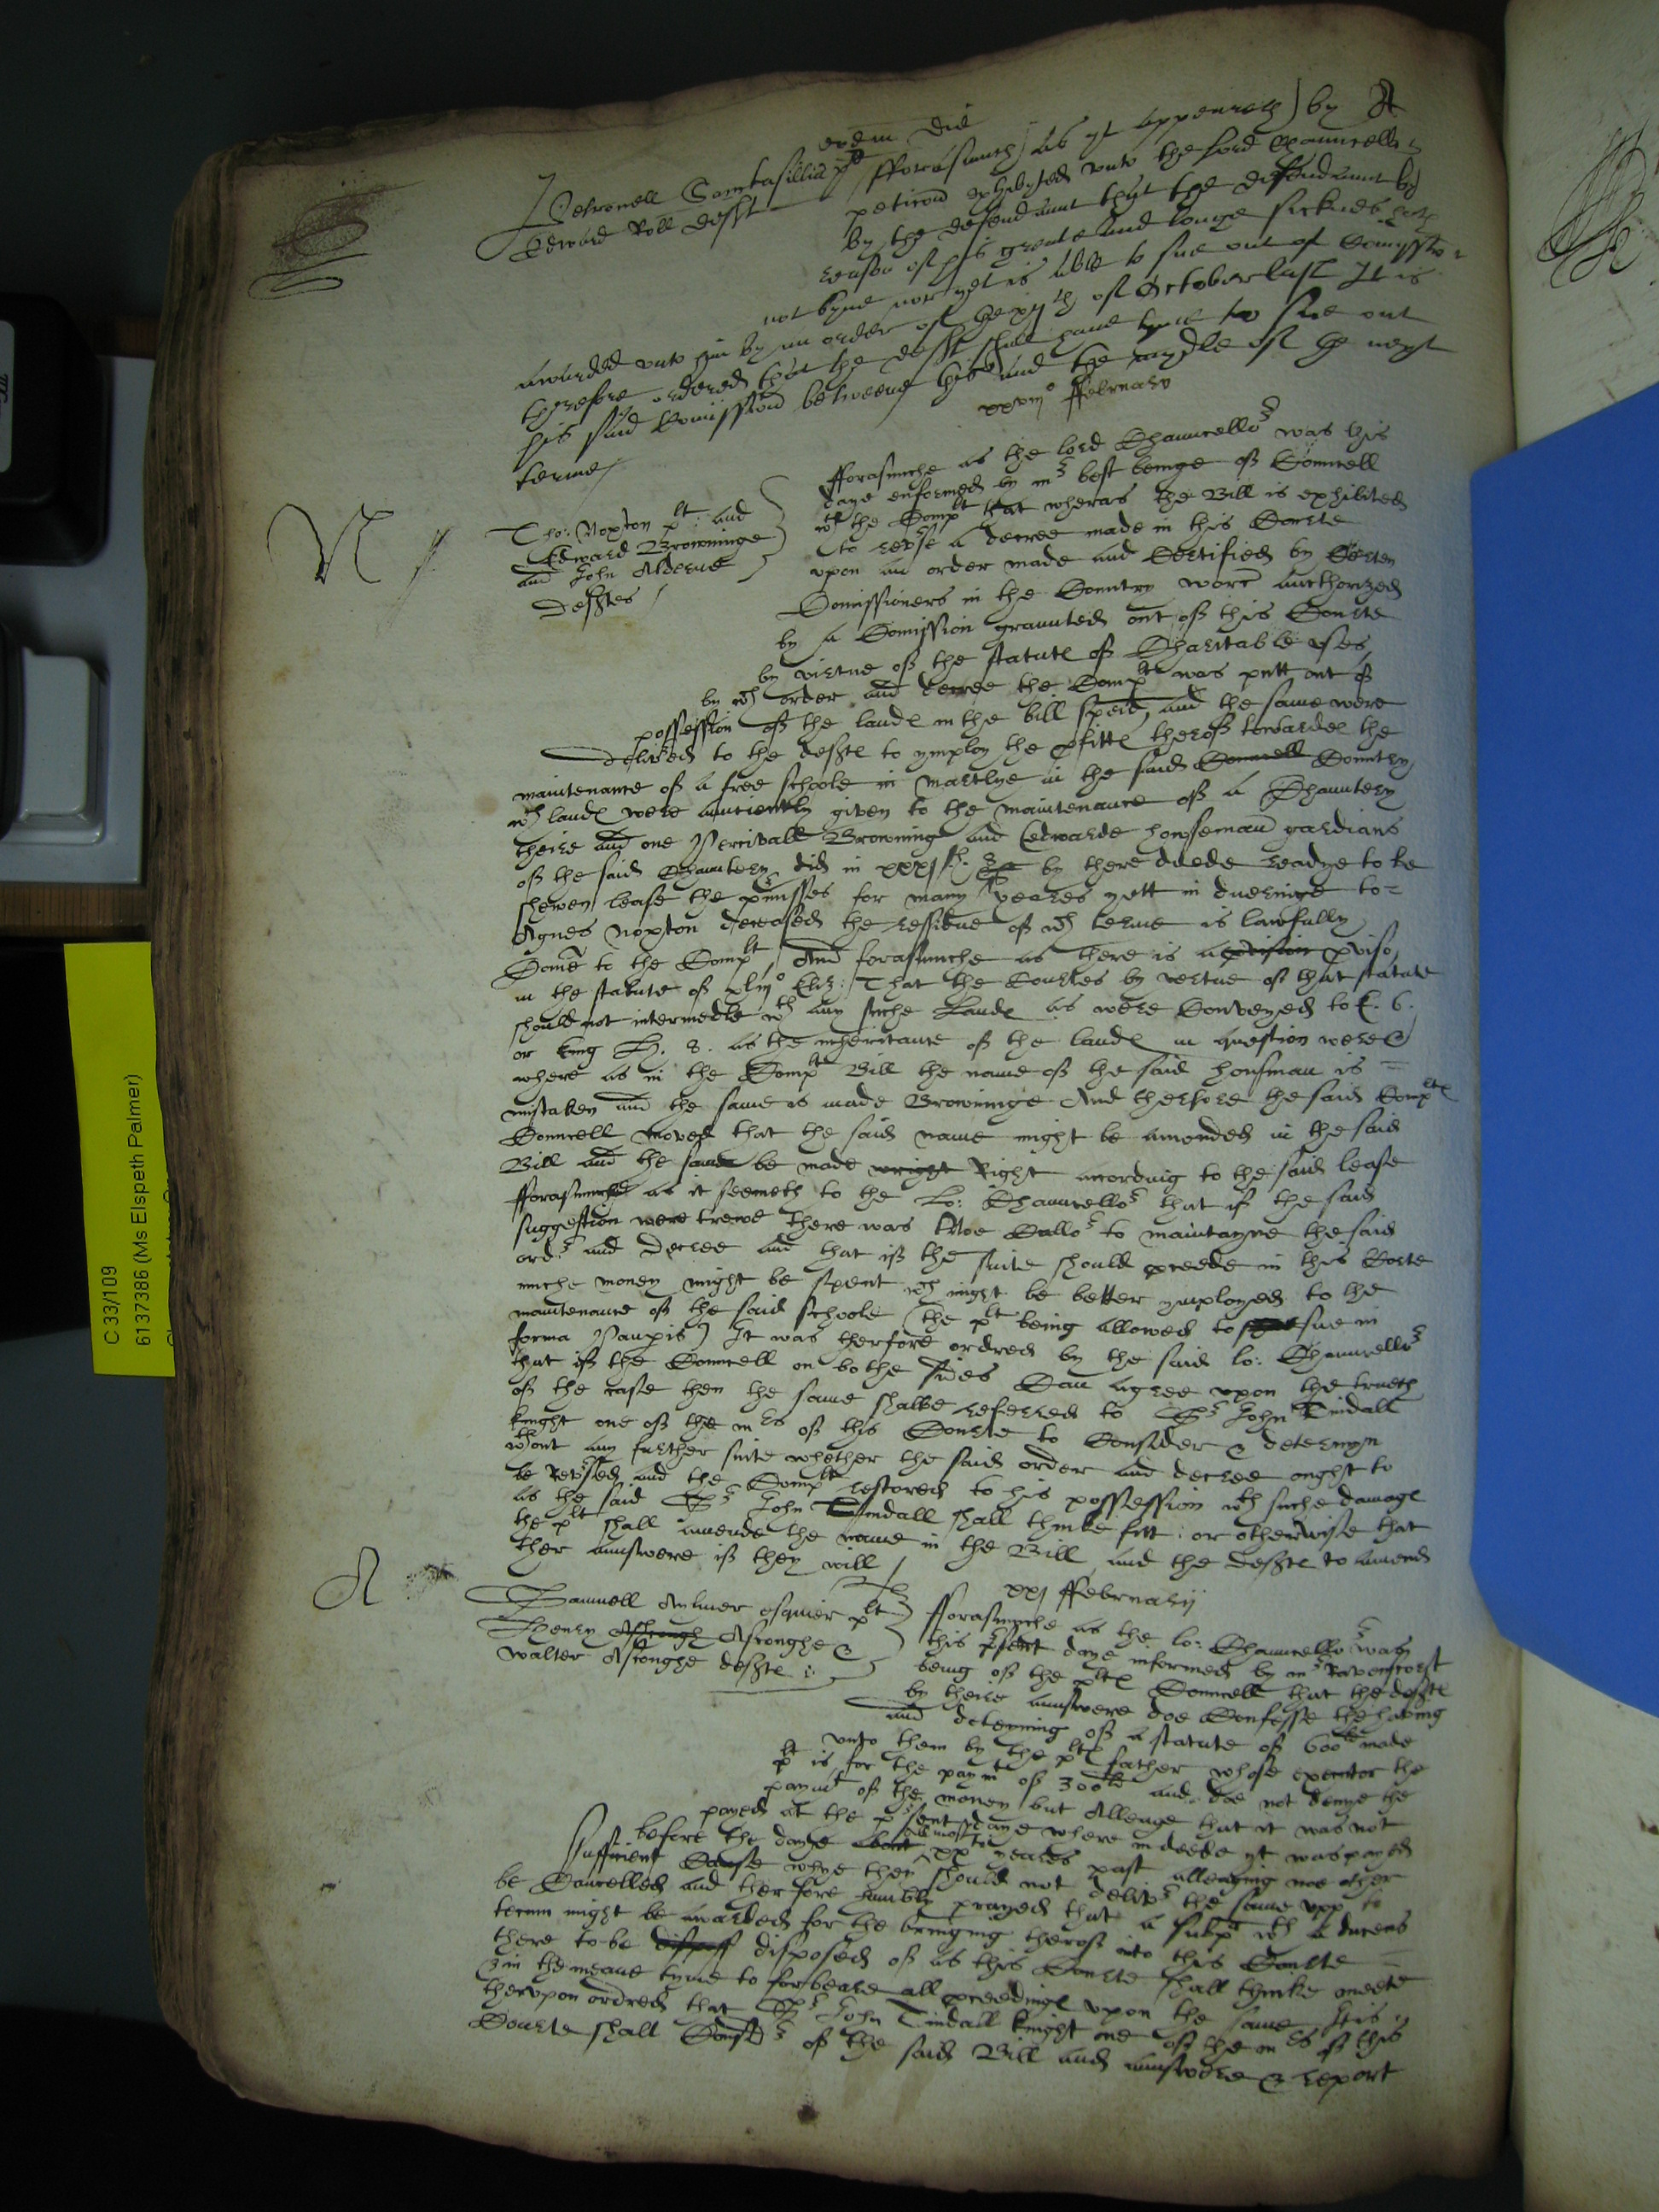 eodem die
Petronell Somtasillia pl fforasmuch as yt appeareth by A
Edward Roll defft peticion exhibyted unto the Lord Chauncellr
by the defendaunt that the defendaunt by
reason of his greate and longe sicknes hath
not byne nor yet is able to sue out of Comyssio
awarded unto him by an order of the xijth of October last It is
therefore ordered that the defft shall have tyme to sue out
his said Comission betweene this and the myddle of the next
terme
xxiijo ffebruary
N
Tho: Noxton plt: and
Edward Browninge
and John Alderne
defftes
fforasmuche as the lord Chauncellor was this
daye enformed by mr best beinge of Councell
wth the Complt that wheras the Bill is exhibited
to revrse a decree made in this Courte
upon an order made and Certified by Certen
Comissioners in the Countrey worc authorized
by a Comission graunted out of this Courte
by virtue of the statute of Charitable uses
by wch order and decree the Complt was putt out of
possession of the landes in the bill specd, and the same were
delivred to the defftes to ymploy the pfittes therof towardes the
maintenance of a free schoole in Martlye in the said Councell Countrey
wch landes were aunciently given to the maintenance of a Chauntery
theire and one Percivall Browning and Edwarde howseman gardians
of the said Chauntery did in xxxjth H 8 by there deede readye to be
shewen lease the pmisses for many yeares yett in dueringe to
Agnes Noxton deceased the residue of wch terme is lawfully
Come to the Complt, And forasmuche as there is a provision pviso
in the statute of xliijo Eliz: That the Courtes by vertue of that statute
should not intermedle wth any suche Landes as were Conveyed to E. 6.
or king H. 8. as the inheritance of the landes in question were &
where as in the Complt Bill the name of the said housman is
mistaken and the same is made Browninge And therfore the said Complts
Councell moved that the said name might be amended in the said
Bill and the same be made wright Right according to the said lease
fforasmuche as it seemeth to the Lo: Chauncellor that if the said
suggestion were trewe there was Noe Collor to maintayne the said
ordr and decree and that if the suite should pceede in this Corte
muche money might be spent wch might be better ymployed to the
maintenance of the said schoole (the plt being allowed to sue in
forma Paupis) It was therfore ordred by the said lo: Chauncellor
that if the Councell on bothe sides Can agree upon the trueth
of the case then the same shalbe referred to Sr John Tindall
knight one of the mrs of this Courte to Consider & determyn
wthout any further suite whether the said order and decree ought to
be Revrsed and the Complt restored to his possession wth suche damages
as the said Sr John Tindall shall thinke fitt: or otherwise that
the plt shall amende the name in the Bill and the defftes to amend
ther aunswere if they will
xxj ffebruarij
A
Samuell Aylmer esquier plt
Henry Ascough Asconghe &
walter Asconghe defftes:
fforasmuche as the lo: Chauncellor was
this psent daye informed by mr Ravenscroft
being of the pltes Councell that the defftes
by theire aunswere doe Confesse the having
and deteyning of a statute of 600li made
unto them by the pltes father whose executor the
plt is, for the paymt of 300li and doe not denye the
paymt of the money but Alleage that it was not
payed at the psent daye where in deede yt was payed
before the daye about allmost xx yeares past alleaging noe other
sufficient Cause whye they should not delivr the same upp to
be Cancelled and therfore humbly prayed that a subp wth a ducens
tecum might be awarded for the bringing therof into this Courte
there to be dispoff disposed of as this Courte shall thinke meete
& in the meane tyme to forbeare all pceedinges upon the same It is
therupon ordred that Sr John Tindall knight one of the mrs of this
Courte shall Considr of the said Bill and aunswere & report
C 33/109
6137386 (Ms Elspeth Palmer)